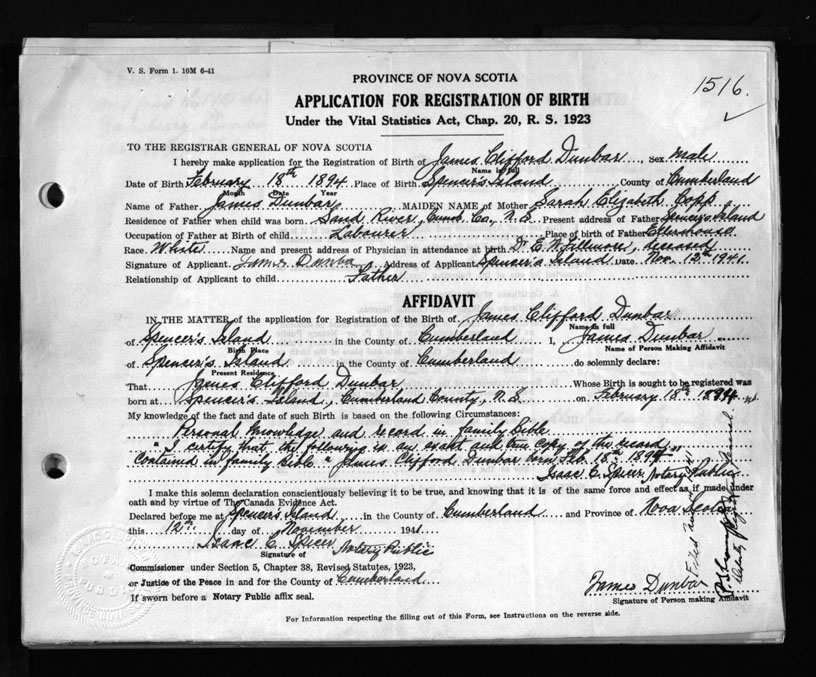 V. S. Form 1. 10M 6-41
1516.
PROVINCE OF NOVA SCOTIA
APPLICATION FOR REGISTRATION OF BIRTH
Under the Vital Statistics Act, Chap. 20, R. S. 1923
TO THE REGISTRAR GENERAL OF NOVA SCOTIA
I hereby make application for the Registration of Birth of James Clifford Dunbar, Sex Male
Name in full
Date of Birth February 18th 1894 Place of Birth Spencer's Island County of Cumberland
Month Date Year
Name of Father James Dunbar MAIDEN NAME of Mother Sarah Elizabeth Copp.
Residence of Father when child was born Sand River, Cumb. Co., N.S. Present address of Father Spencer's Island
Occupation of Father at Birth of child Labourer Place of birth of Father Ellershouse
Race White Name and present address of Physician in attendance at birth Dr. E. N. Fillmore, deceased
Signature of Applicant James Dunbar Address of Applicant Spencer's Island Date Nov. 12th 1941.
Relationship of Applicant to child Father
AFFIDAVIT
IN THE MATTER of the application for Registration of the Birth of James Clifford Dunbar
Name in full
of Spencer's Island in the County of Cumberland I, James Dunbar
Birth Place Name of Person Making Affidavit
of Spencer's Island in the County of Cumberland do solemnly declare:
Present Residence
That James Clifford Dunbar, Whose Birth is sought to be registered was
born at Spencer's Island, Cumberland County, N.S. on February 18th 1894
My knowledge of the fact and date of such Birth is based on the following Circumstances:
Personal Knowledge and record in family Bible
"I certify that the following is an exact and true copy of the record
contained in family Bible "James Clifford Dunbar born Feb. 18th 1894"
Isaac E. Spicer Notary Public
I make this solemn declaration conscientiously believing it to be true, and knowing that it is of the same force and effect as if made under
oath and by virtue of The Canada Evidence Act.
Declared before me at Spencer's Island in the County of Cumberland and Province of Nova Scotia
this 12th day of November 1941
Isaac E. Spicer Notary Public
Signature of
Commissioner under Section 5, Chapter 38, Revised Statutes, 1923,
or Justice of the Peace in and for the County of Cumberland
If sworn before a Notary Public affix seal.
James Dunbar
Signature of Person making Affidavit
For Information respecting the filling out of this Form, see Instructions on the reverse side.